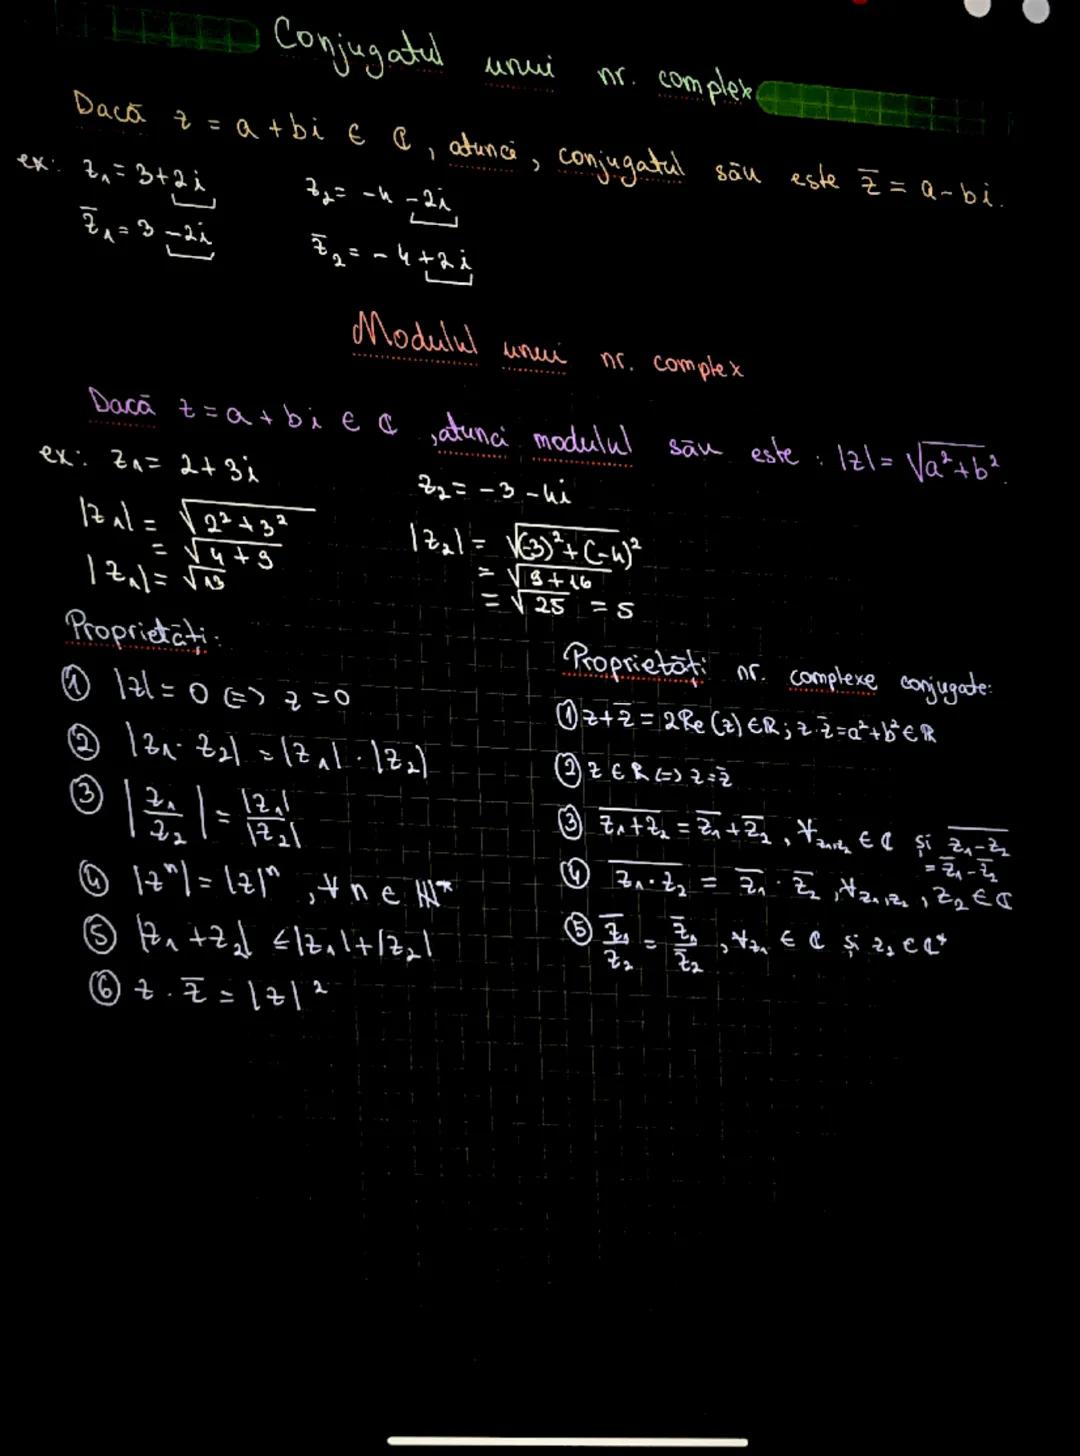 Conjugatul unui nr. complex
Dacă z = a + bi ∈ ℂ, atunci, conjugatul său este z̅ = a - bi.
ex: z₁ = 3+2i z₂ = -4 -2i
z̅₁ = 3 -2i z̅₂ = -4 +2i
Modulul unui nr. complex
Dacă z = a + bi ∈ ℂ, atunci modulul său este : |z| = √(a²+b²).
ex: z₁ = 2+3i z₂ = -3 -4i
|z₁| = √(2²+3²) |z₂| = √((-3)²+(-4)²)
= √(4+9) = √(9+16)
|z₁| = √13 = √25 = 5
Proprietăți:
① |z| = 0 ⟺ z = 0
② |z₁·z₂| = |z₁|·|z₂|
③ |z₁/z₂| = |z₁|/|z₂|
④ |zⁿ| = |z|ⁿ, ∀ n ∈ ℕ*
⑤ |z₁+z₂| ≤ |z₁|+|z₂|
⑥ z · z̅ = |z|²
Proprietăți nr. complexe conjugate:
① z+z̅ = 2Re(z) ∈ ℝ; z·z̅ = a²+b² ∈ ℝ
② z ∈ ℝ ⟺ z = z̅
③ \overline{z₁+z₂} = z̅₁+z̅₂, ∀ z₁,z₂ ∈ ℂ și \overline{z₁-z₂}
= z̅₁-z̅₂
④ \overline{z₁·z₂} = z̅₁ · z̅₂, ∀ z₁,z₂, z₂ ∈ ℂ
⑤ z̅₁/z₂ = z̅₁/z̅₂, ∀ z₁ ∈ ℂ și z₂ ∈ ℂ*